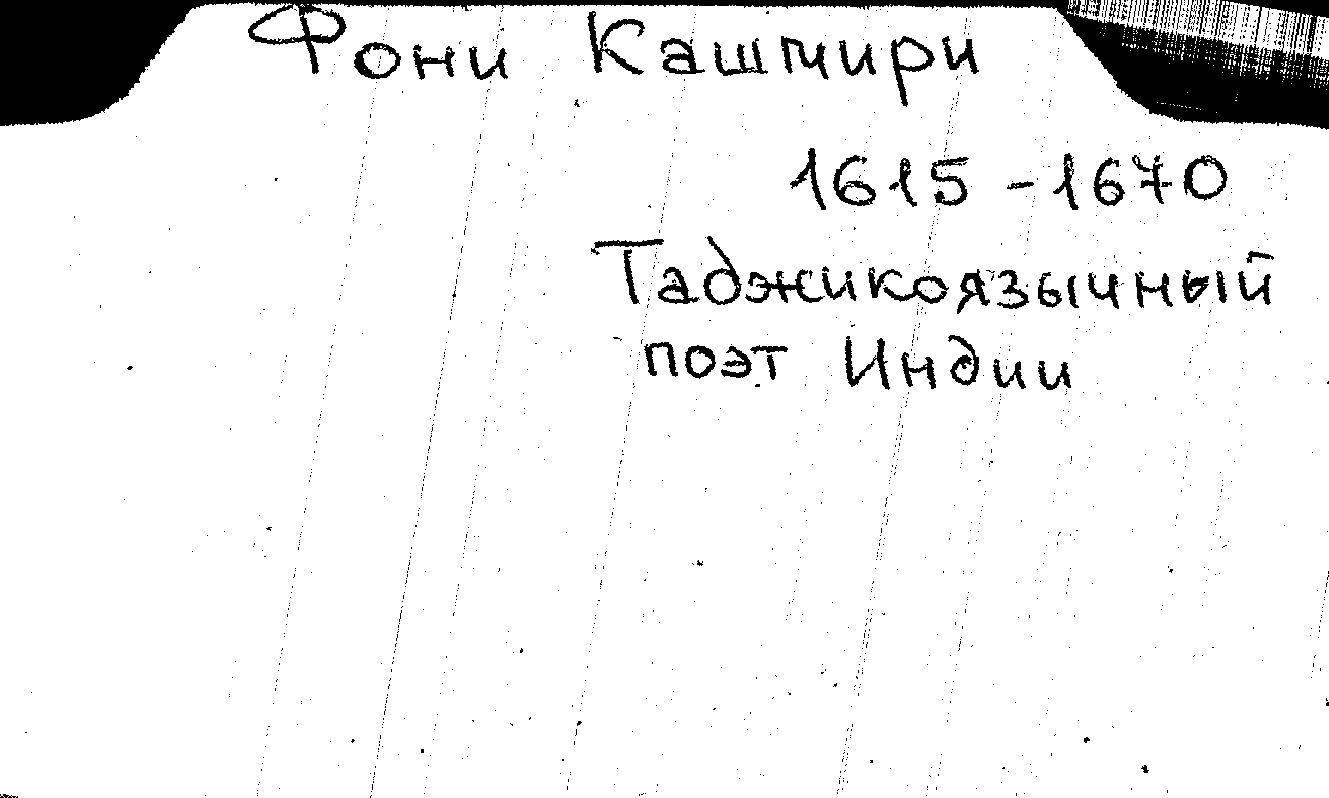 Фони Кашмири
1615 - 1670
Таджикоязычный
поэт Индии